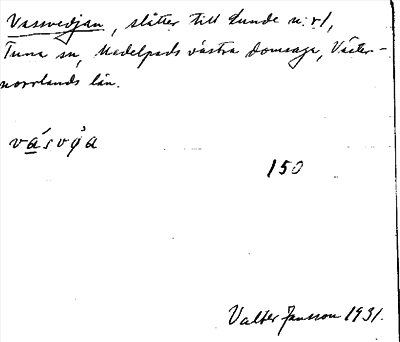 Vassvedjan, slåtter till Lunde n:r 1,
Tuna sn, Medelpads västra domsaga, Väster-
norrlands län.
150
Valter Jansson 1931.